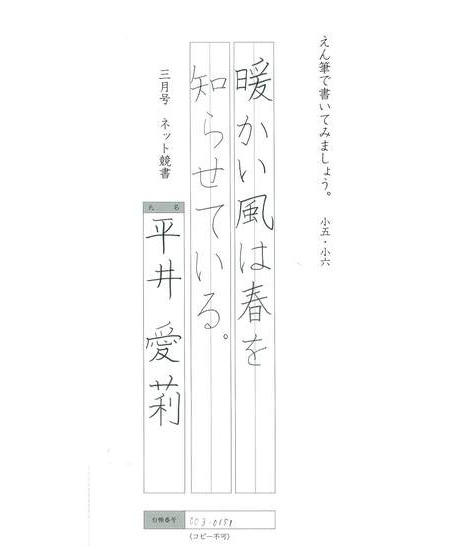 えん筆で書いてみましょう。 小五・小六
暖かい風は春を
知らせている。
三月号 ネット競書
氏名
平井 愛莉
台帳番号
003-0151
(コピー不可)